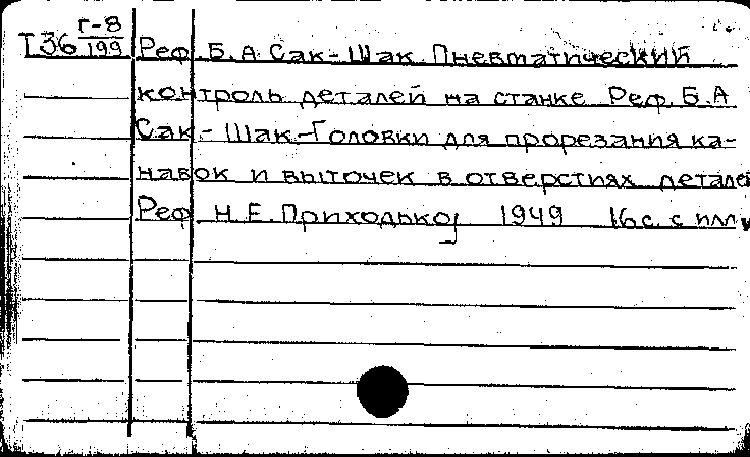 Г-8
Т36 199 Реф. Б. А Сак-Шак. Пневматический
контроль деталей на станке Реф. Б. А
Сак.- Шак.-Головки для прорезания ка-
навок и выточек в отверстиях деталей
Реф Н. Е. Приходько, 1949 16 с. с илл